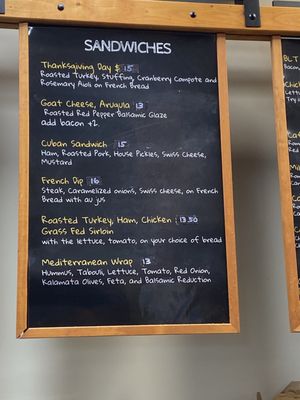 SANDWICHES
Thanksgiving Day $ 15
Roasted Turkey, Stuffing, Cranberry Compote and
Rosemary Aioli on French Bread
Goat Cheese, Arugula 13
Roasted Red Pepper Balsamic Glaze
add bacon +2.
Cuban Sandwich 15
Ham, Roasted Pork, House Pickles, Swiss Cheese,
Mustard
French Dip 16
Steak, Caramelized onions, Swiss cheese, on French
Bread with au jus
Roasted Turkey, Ham, Chicken 13.50
Grass Fed Sirloin
with the lettuce, tomato, on your choice of bread
Mediterranean Wrap 13
Hummus, Tabouli, Lettuce, Tomato, Red Onion,
Kalamata Olives, Feta, and Balsamic Reduction
BLT